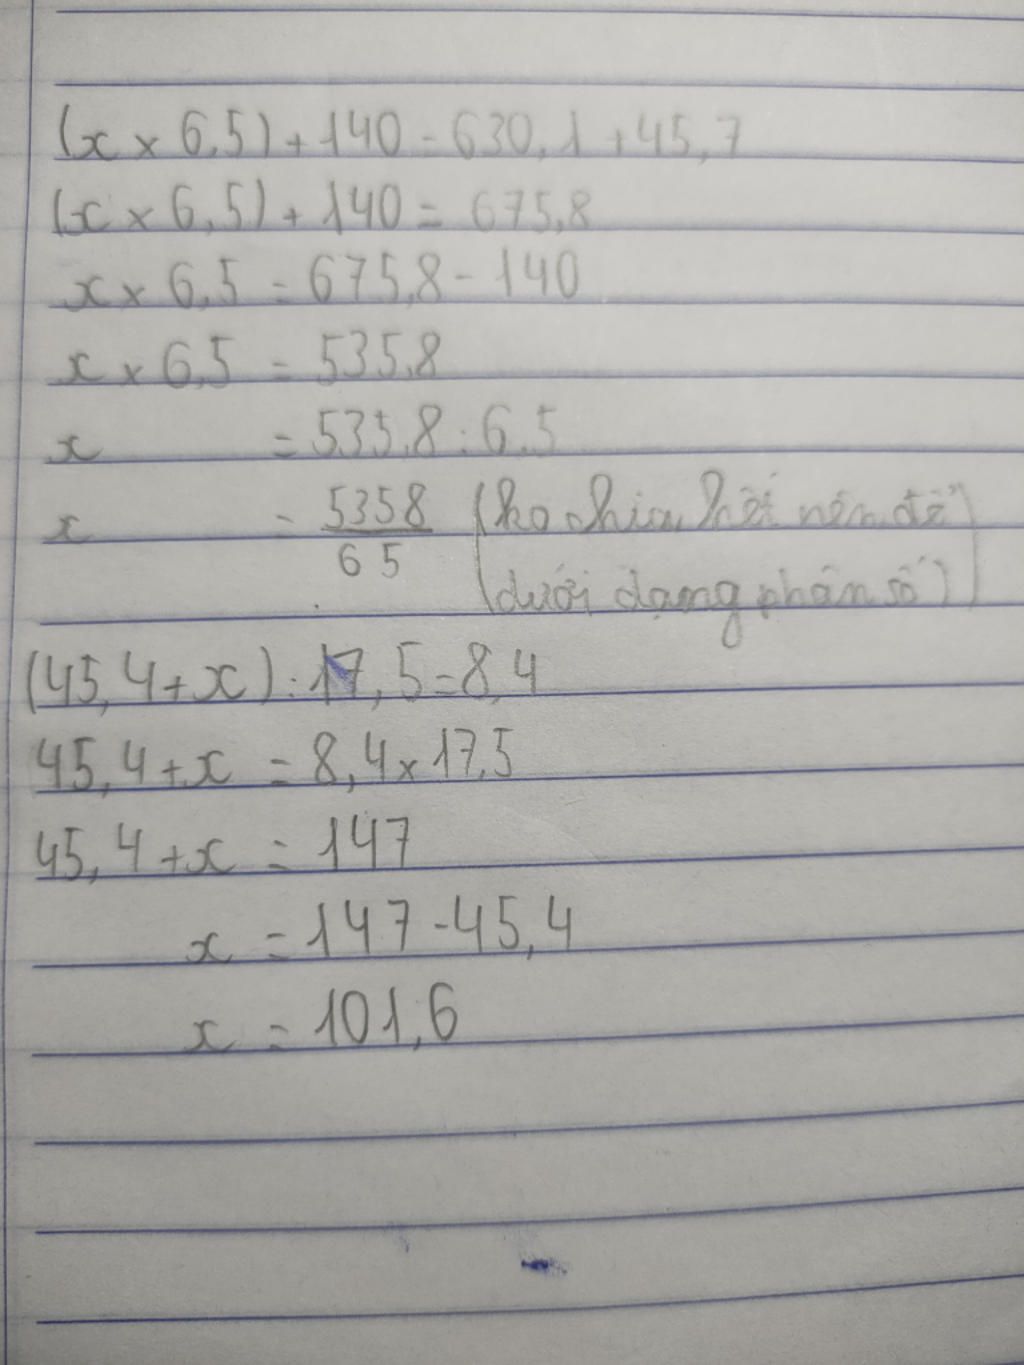 (x × 6,5) + 140 = 630,1 + 45,7
(x × 6,5) + 140 = 675,8
x × 6,5 = 675,8 - 140
x × 6,5 = 535,8
x = 535,8 : 6,5
x = 5358/65 (ko chia hết nên để
(dưới dạng phân số)
(45,4 + x) : 17,5 = 8,4
45,4 + x = 8,4 × 17,5
45,4 + x = 147
x = 147 - 45,4
x = 101,6